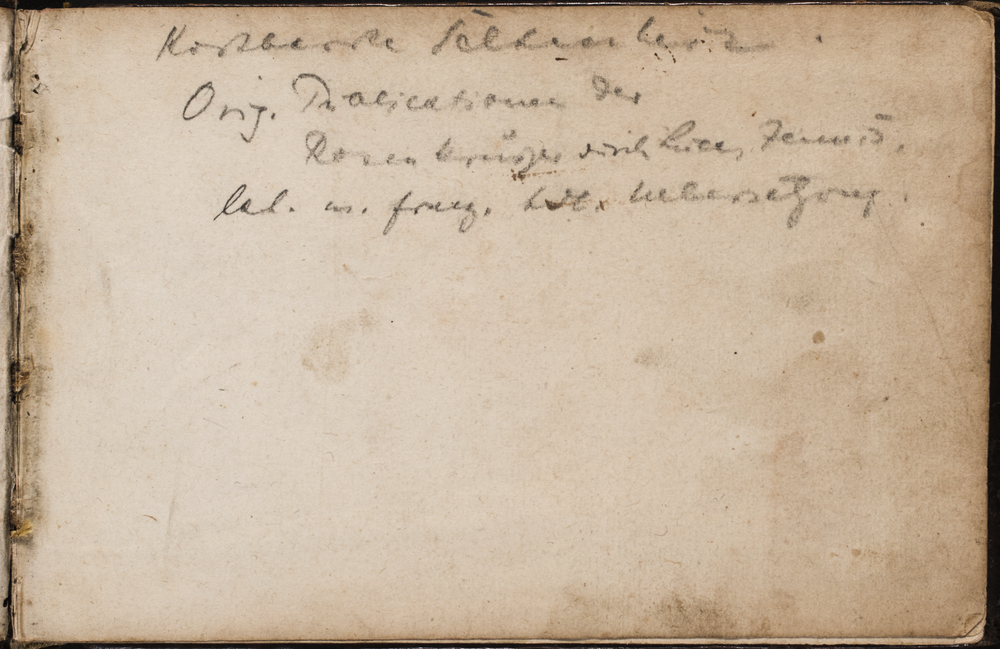 Kostbarste Seltenheit.
Orig. Publicationen der
Rosenkreuzer durch Luc. Jennis.
lat. u. franz. hdt. Uebersetzung.